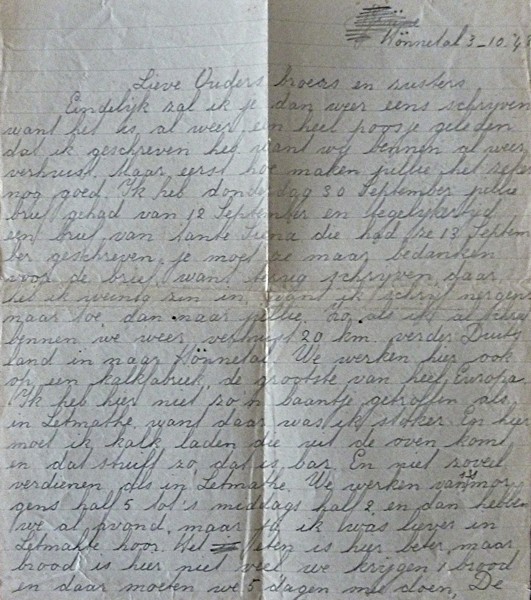 Hönnetal 3-10-43
Lieve Ouders broers en zusters
Eindelijk zal ik je dan weer eens schrijven
want het is al weer een heel poosje geleden
dat ik geschreven heb want wij bennen al weer
verhuist. Maar eerst hoe maken jullie het zeker
nog goed. Ik heb donderdag 30 September jullie
brief gehad van 12 September en tegelijkertijd
een brief van tante Siena die had ze 13 Septem
ber geschreven, je moet ze maar bedanken
voor de brief want terug schrijven daar
heb ik weinig zin in want ik schrijf nergens
maar toe dan naar jullie. Zo als ik al schreef
bennen we weer verhuist 20 km verder Duits
land in naar Hönnetal. We werken hier ook
op een kalkfabriek, de grootste van heel Europa
Ik heb hier niet zo'n baantje getroffen als
in Letmathe, want daar was ik stoker. En hier
moet ik kalk laden die uit de oven komt
en dat stuift zo dat is bar. En niet zoveel
verdienen als in Letmathe. We werken van 's mor
gens half 5 tot 's middags half 2 en dan hebben
we al avond, maar ik was liever in
Letmathe hoor. Het eten is hier beter, maar
brood is hier niet veel we krijgen 1 brood
en daar moeten we 5 dagen mee doen, De